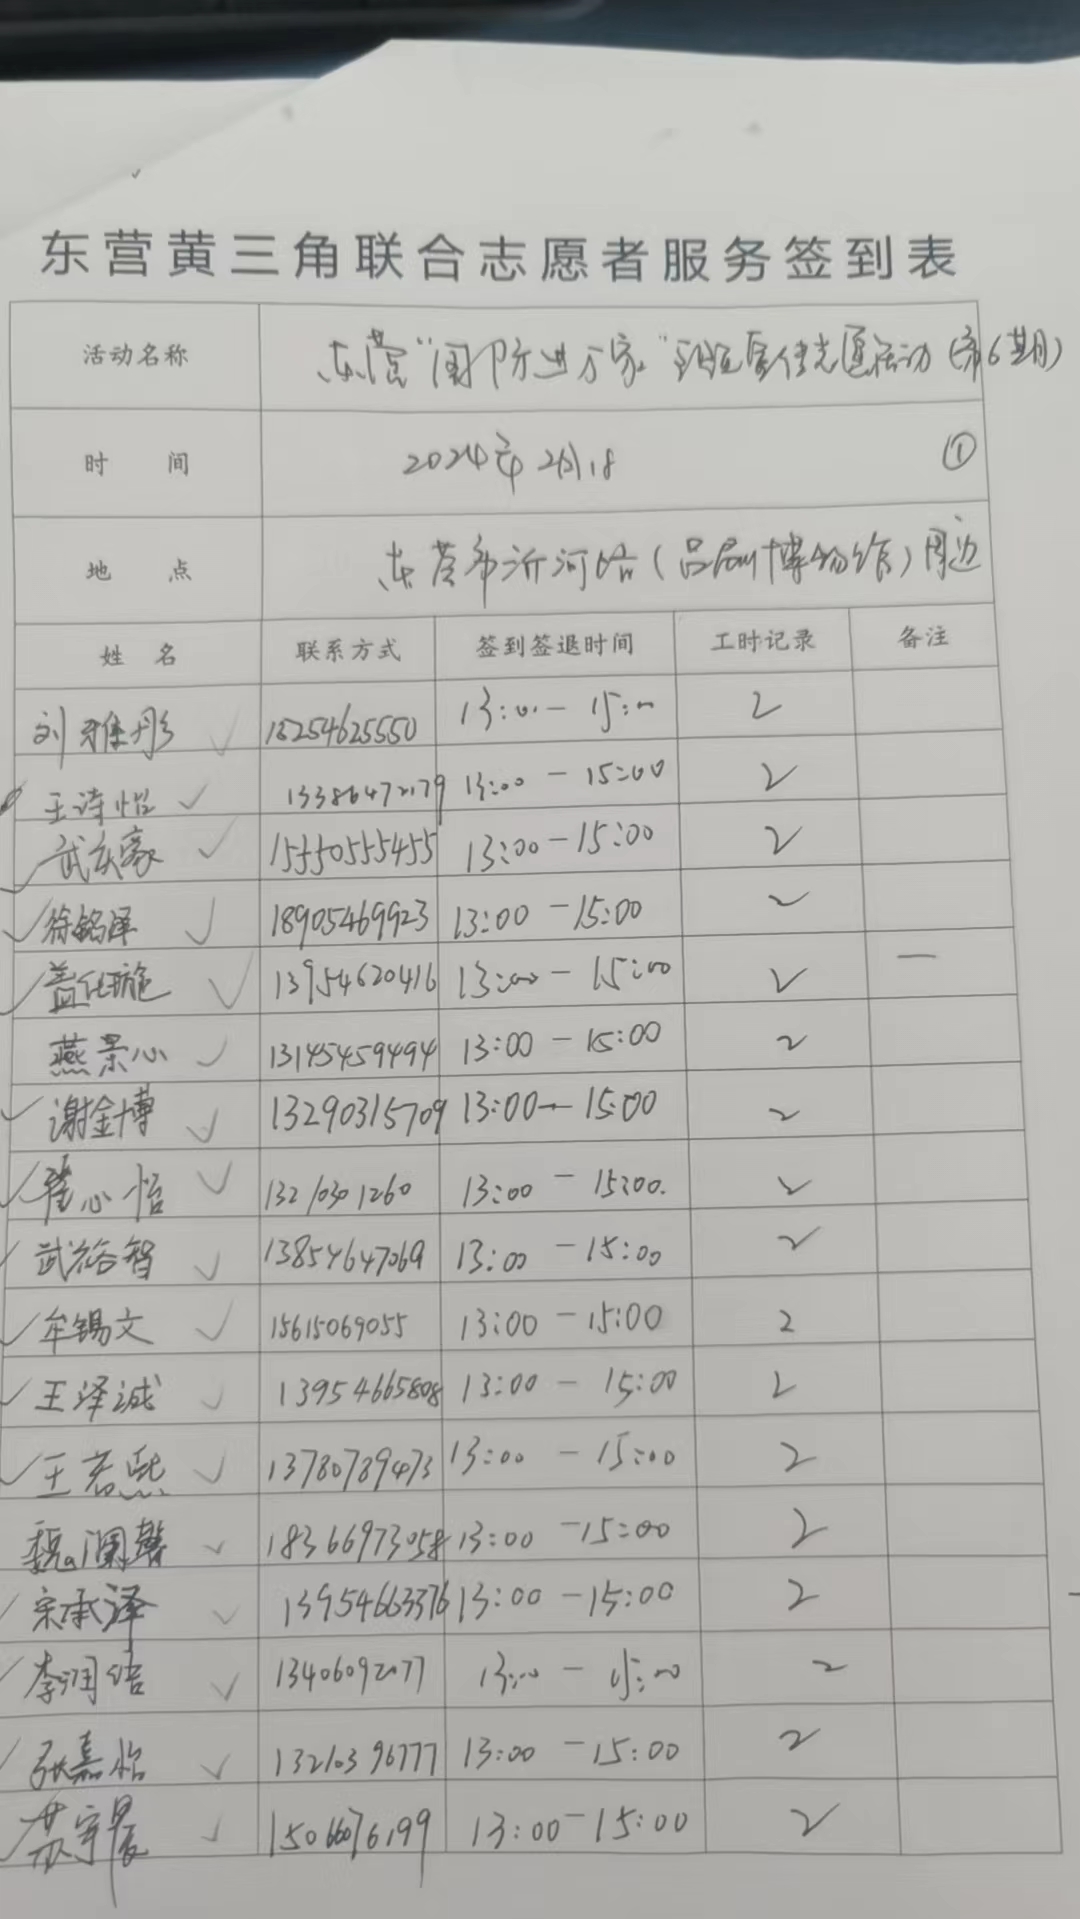 东营黄三角联合志愿者服务签到表
活动名称 东营“国防进万家”宣传志愿活动（第6期）
时 间 2024年2月18 ①
地 点 东营市沂河路（博物馆）周边
姓 名 联系方式 签到签退时间 工时记录 备注
刘雅彤 18254625550 13:00－15:00 2
王诗怡 13386472179 13:00－15:00 2
武庆豪 15550555455 13:00－15:00 2
徐铭泽 18905469923 13:00－15:00 2
盖任璇 13954620416 13:00－15:00 2 —
燕景心 13145459494 13:00－15:00 2
谢金博 13290315709 13:00－15:00 2
翟心怡 13210301260 13:00－15:00 2
武裕智 13854647069 13:00－15:00 2
牟锡文 15615069055 13:00－15:00 2
王泽诚 13954665808 13:00－15:00 2
王若熙 13780789473 13:00－15:00 2
魏澜馨 18366973058 13:00－15:00 2
宋承泽 13954663376 13:00－15:00 2
李润培 13406092077 13:00－15:00 2
张嘉怡 13210396777 13:00－15:00 2
苏宇晨 15066076199 13:00－15:00 2